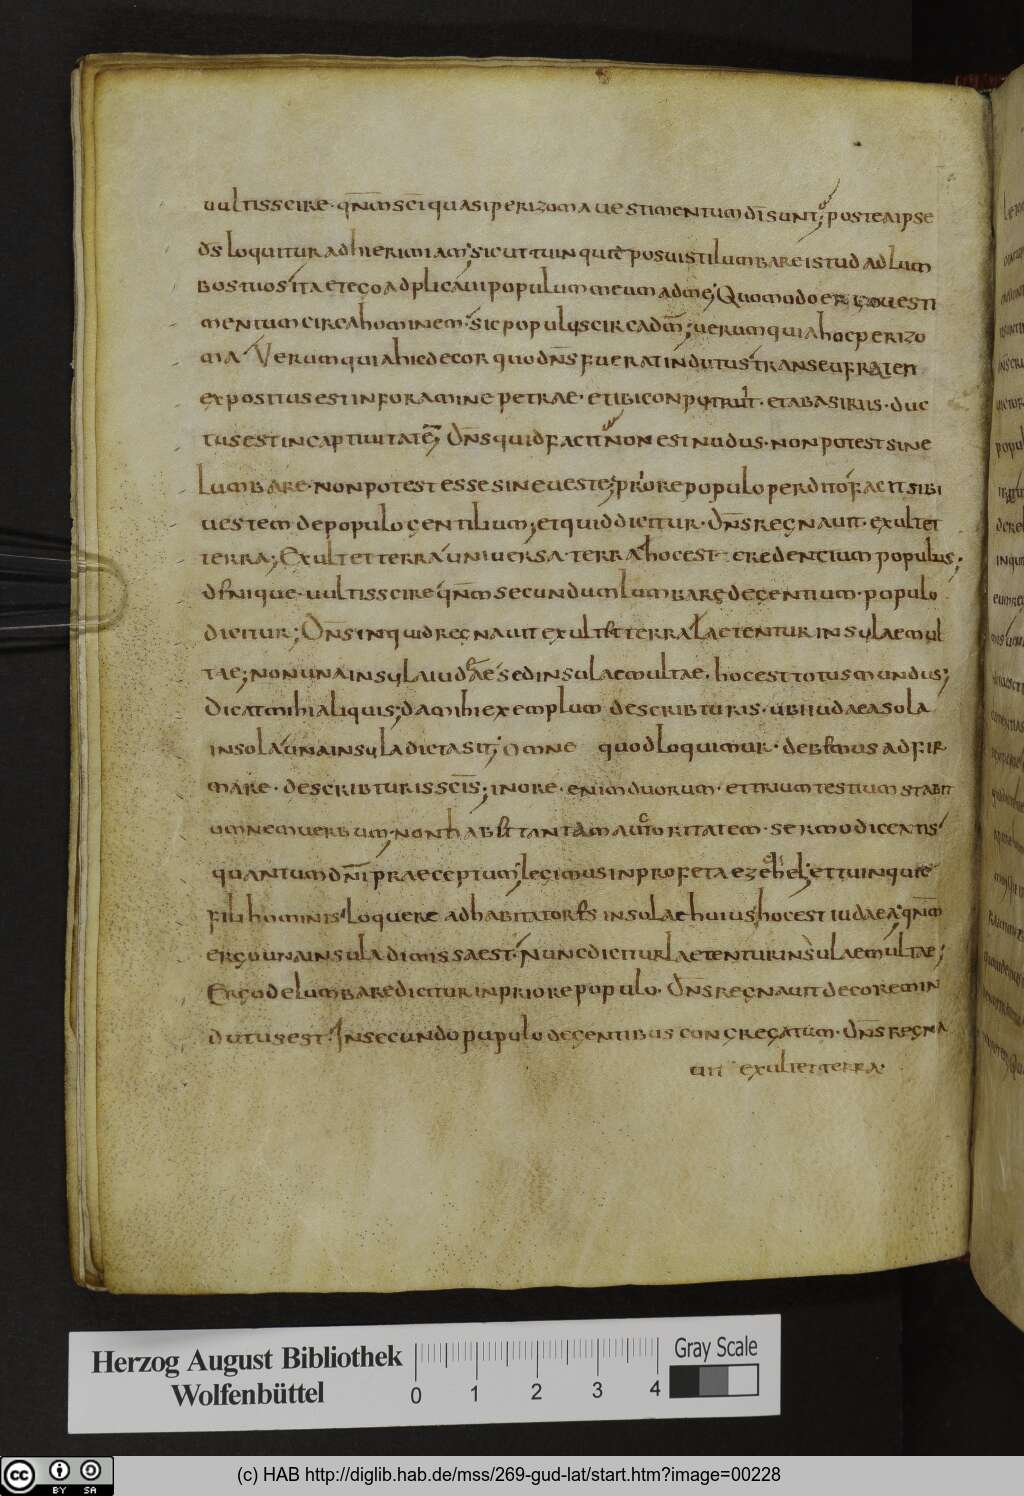 uultisscire · qnm sci quasi perizoma uestimentum di sunt; postea ipse
ds loquitur ad hieremiam; sicut tu inquid posuisti lumbare istud ad lum
bos tuos ita et ego adplicaui populum meum ad me; Quomodo ergo uesti
mentum circa hominem · sic populus circa dm; uerum quia hoc perizo
ma · Uerum quia hic decor quo dns fuerat indutus transeufraten
expositus est in foramine petrae · et ibi conputruit · et abasiriis · duc
tus est in captiuitate; Dns quid facit non est nudus · non potest sine
Lumbare · non potest esse sine ueste; priore populo perdito facit sibi
uestem de populo gentilium; et quid dicitur · dns regnauit · exultet
terra; Exultet terra uniuersa terra hoc est credencium populus;
denique · uultis scire qnm secundum lumbare de gentium · populo
dicitur; Dns inquid regnauit exultet terra laetentur insulae mul
tae; non una insula iudaeae sed insulae multae · hoc est totus mundus;
Dicat mihi aliquis; da mihi exemplum de scribturis · ubi iudaea sola
insola una insula dicta sit; omne quod loquimur · debemus adfir
mare · de scribturis scis; in ore · enim duorum · et trium testium stabit
omne uerbum · non habet tantam autoritatem · sermo dicentis
quantum dni praeceptum; legimus in profeta ezechihel; et tu inquit
fili hominis loquere ad habitatores insolae huius hoc est iudaea; qnm
ergo una insula dimissa est · Nunc dicitur laetentur insulae multae;
Ergo de lumbare dicitur in priore populo · Dns regnauit decorem in
dutus est · In secundo populo de gentibus congregatum · dns regna
uit exultet terra ·
Herzog August Bibliothek
Wolfenbüttel
0 1 2 3 4
Gray Scale
cc BY SA
(c) HAB http://diglib.hab.de/mss/269-gud-lat/start.htm?image=00228